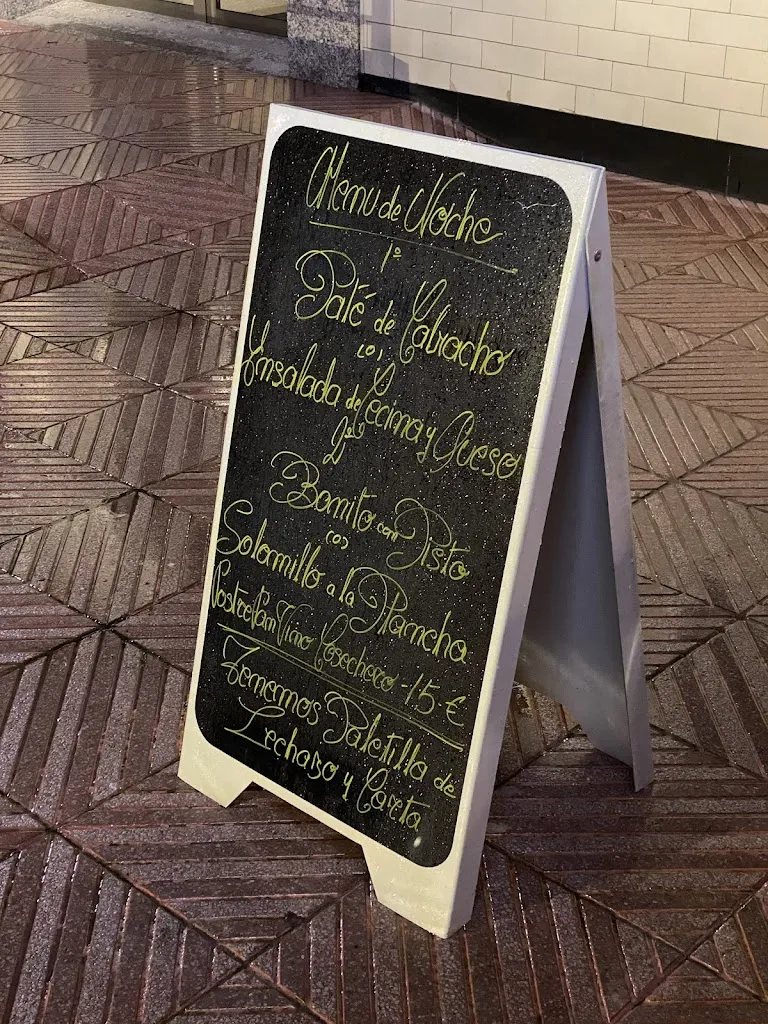 Menu de Noche
1º
Paté de Cabracho
(o)
Ensalada de Cecina y Queso
2º
Bonito con Pisto
(o)
Solomillo a la Plancha
Postre Pan Vino Cosechero -15-€
Tenemos Paletilla de
Lechazo y Careta